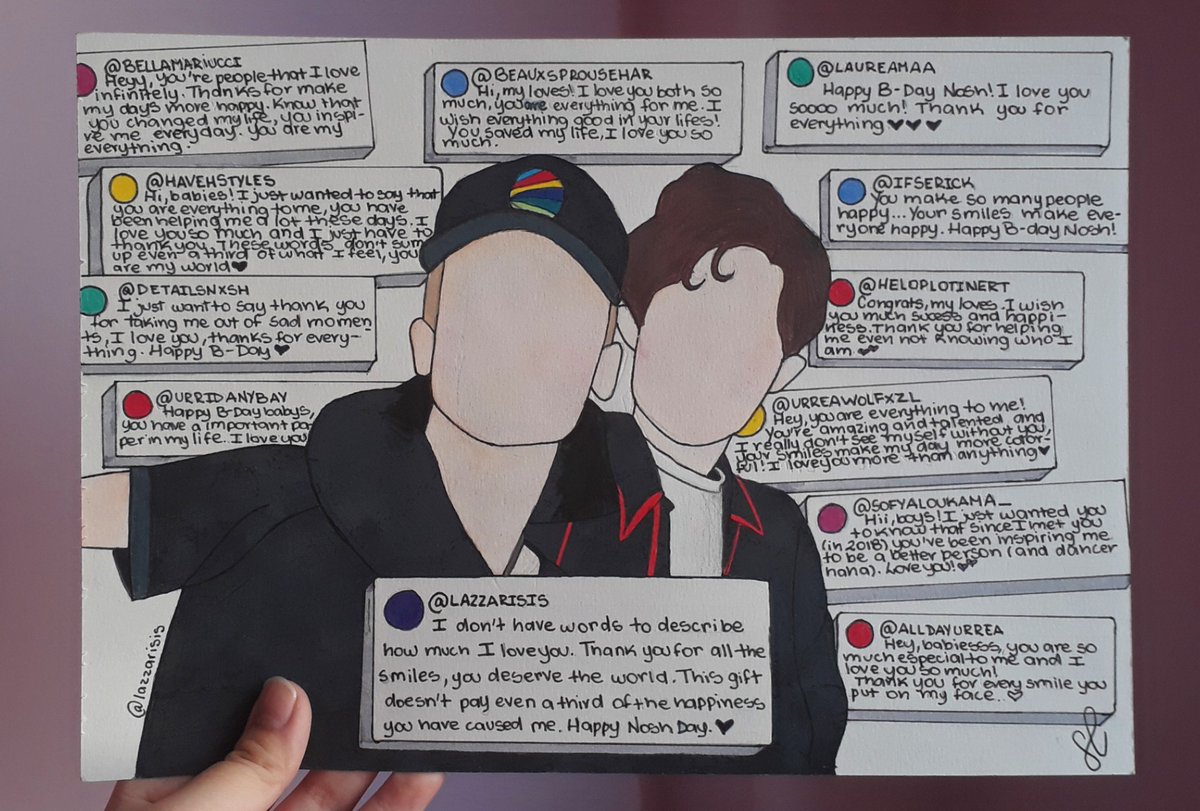 @BELLAMARIUCCI
Heyy, you're people that I love
infinitely. Thanks for make
my days more happy. Know that
you changed my life, you inspi-
re me everyday. You are my
everything.
@BEAUXSPROUSEHAR
Hi, my loves! I love you both so
much, you are everything for me. I
wish everything good in your lifes!
You saved my life, I love you so
much.
@LAUREAMAA
Happy B-Day Nosh! I love you
soooo much! Thank you for
everything ♥♥♥
@HAVEHSTYLES
Hi, babies! I just wanted to say that
you are everything to me, you have
been helping me a lot these days. I
love you so much and I just have to
thank you. These words don't sum
up even a third of what I feel, you
are my world♥
@IFSERICK
You make so many people
happy... Your smiles make eve-
ryone happy. Happy B-day Nosh!
@DETAILSNXSH
I just want to say thank you
for taking me out of sad momen
ts, I love you, thanks for every-
thing. Happy B-Day ♥
@HELOPLOTINERT
Congrats, my loves. I wish
you much sucess and happi-
ness. Thank you for helping
me even not knowing who I
am ♥♥
@URRIDANYBAY
Happy B-Day babys,
you have a important pa
per in my life. I love you
@URREAWOLFXZL
Hey, you are everything to me!
You're amazing and talented, and
I really don't see myself without you,
your smiles make my day more color-
ful! I love you more than anything♥
@SOFYALOUKAMA_
Hii, boys! I just wanted you
to know that since I met you
(in 2018) you've been inspiring me
to be a better person (and dancer
haha). Love you!♡♡
@LAZZARISIS
I don't have words to describe
how much I love you. Thank you for all the
smiles, you deserve the world. This gift
doesn't pay even a third of the happiness
you have caused me. Happy Nosh Day. ♥
@ALLDAYURREA
Hey, babiesss, you are so
much especial to me and I
love you so much!
Thank you for every smile you
put on my face. ♡
@lazzarisis